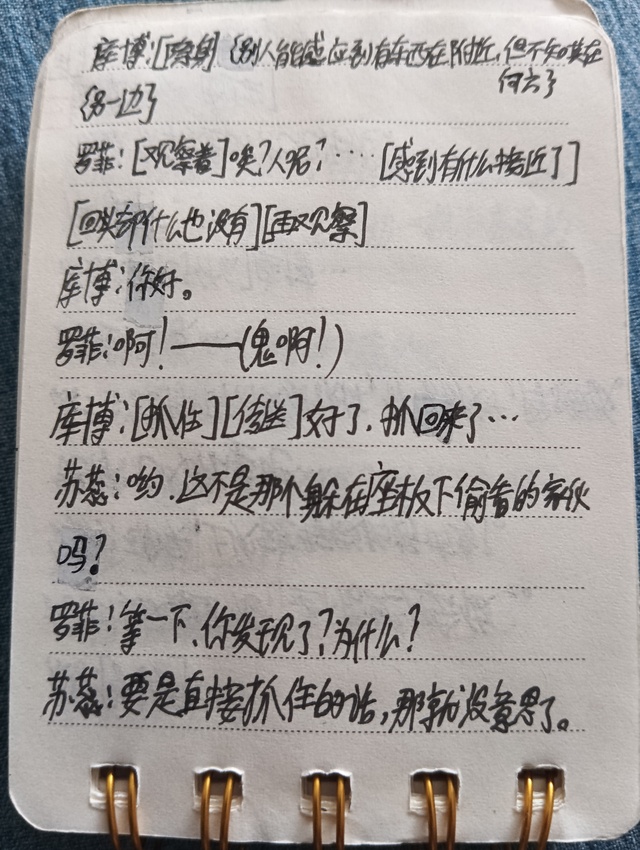 库博:[隐身]{别人能感应到有东西在附近,但不知其在
何方}
{另一边}
罗菲:[观察着]唉?人呢?····[感到有什么接近了]
[回头却什么也没有][再次观察]
库博:你好。
罗菲:啊!——(鬼啊!)
库博:[抓住][传送]好了,抓回来了···
苏蕊:哟,这不是那个躲在座板下偷看的家伙
吗?
罗菲:等一下,你发现了?为什么?
苏蕊:要是直接抓住的话,那就没意思了。